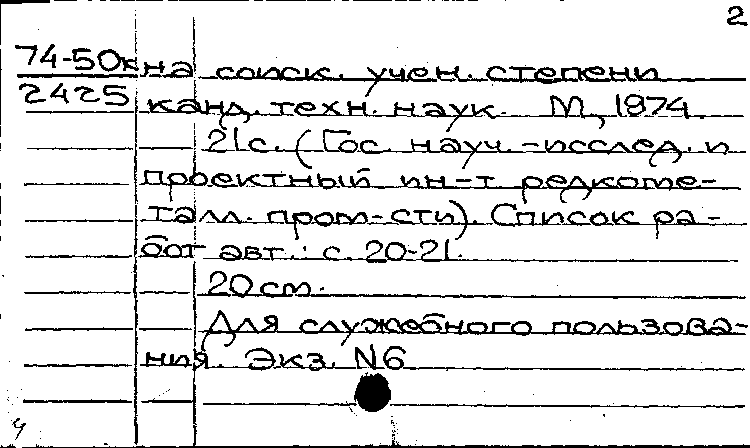 2
74-50к на соиск. учен. степени
2425 канд. техн. наук. М, 1974.
21с. (Гос. науч.-исслед. и
проектный ин-т редкоме-
талл. пром-сти). Список ра-
бот авт.: с. 20-21.
20 см.
Для служебного пользова-
ния. Экз. N6